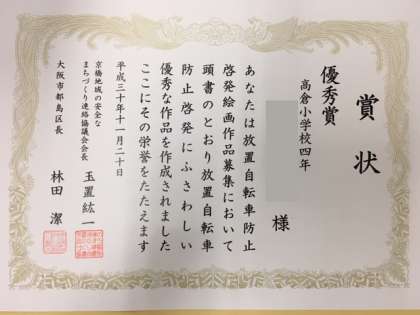 賞状
優秀賞
高倉小学校四年
様
あなたは放置自転車防止
啓発絵画作品募集において
頭書のとおり放置自転車
防止啓発にふさわしい
優秀な作品を作成されました
ここにその栄誉をたたえます
平成三十年十一月二十日
京橋地域の安全な
まちづくり連絡協議会会長
玉置紘一
大阪市都島区長
林田潔